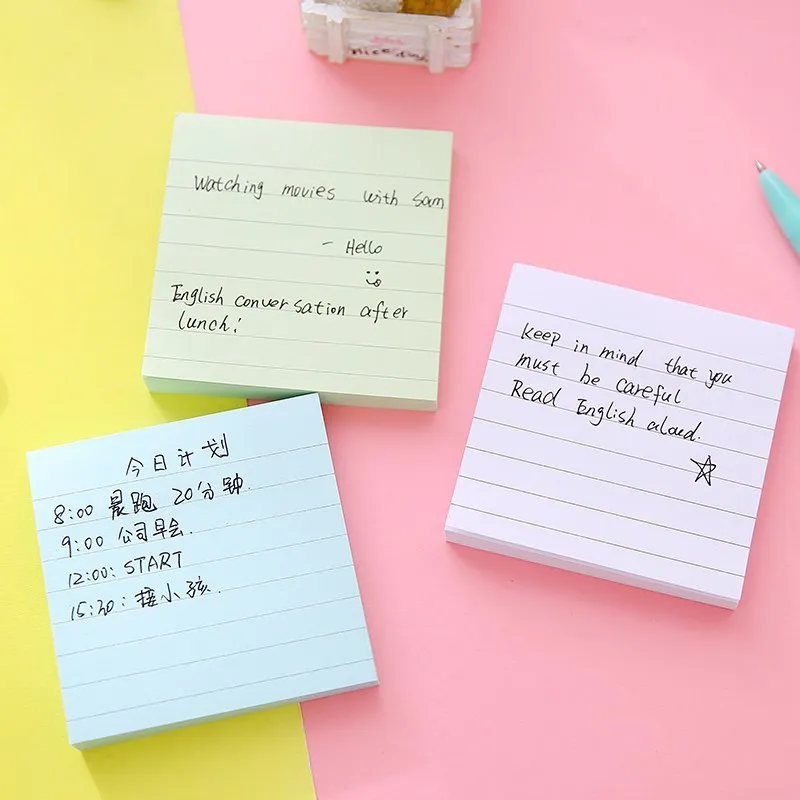 Nice day
Watching movies with Sam
- Hello
English conversation after
lunch!
Keep in mind that you
must be careful
Read English aloud.
今日计划
8:00 晨跑 20分钟.
9:00 公司早会.
12:00: START
15:30: 接小孩.